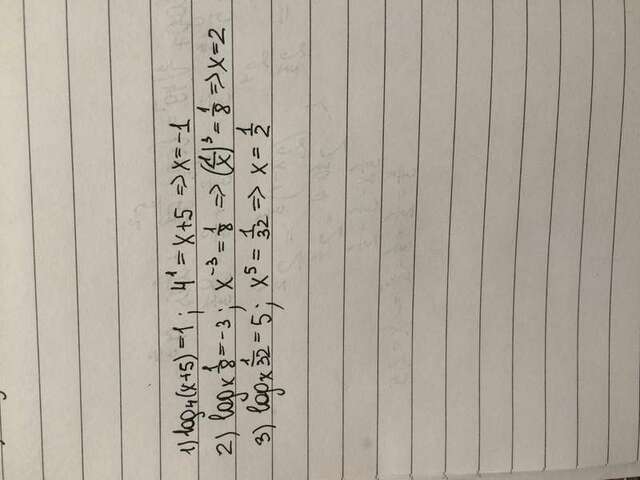 1) log₄(x+5) = 1 ; 4¹ = x+5 => x = -1
2) logₓ 1/8 = -3 ; x⁻³ = 1/8 => (1/x)³ = 1/8 => x = 2
3) logₓ 1/32 = 5 ; x⁵ = 1/32 => x = 1/2